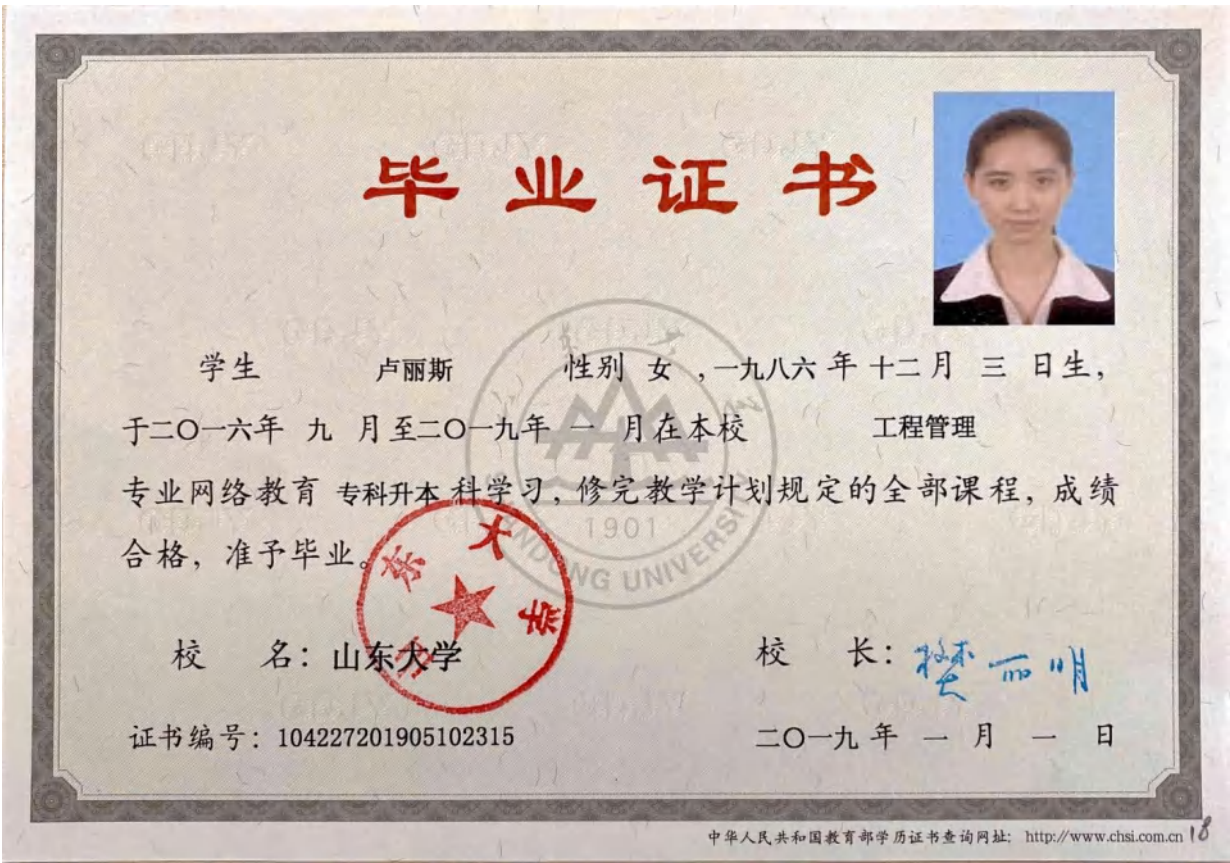 毕业证书
学生 卢丽斯 性别 女 ,一九八六 年 十二 月 三 日生,
于二〇一六年 九 月至二〇一九年 一 月在本校 工程管理
专业网络教育 专科升本 科学习, 修完教学计划规定的全部课程, 成绩
合格, 准予毕业。
1901
SHANDONG UNIVERSITY
山东大学
校 名: 山东大学
校 长: 樊丽明
证书编号: 104227201905102315
二〇一九 年 一 月 一 日
中华人民共和国教育部学历证书查询网址: http://www.chsi.com.cn
18